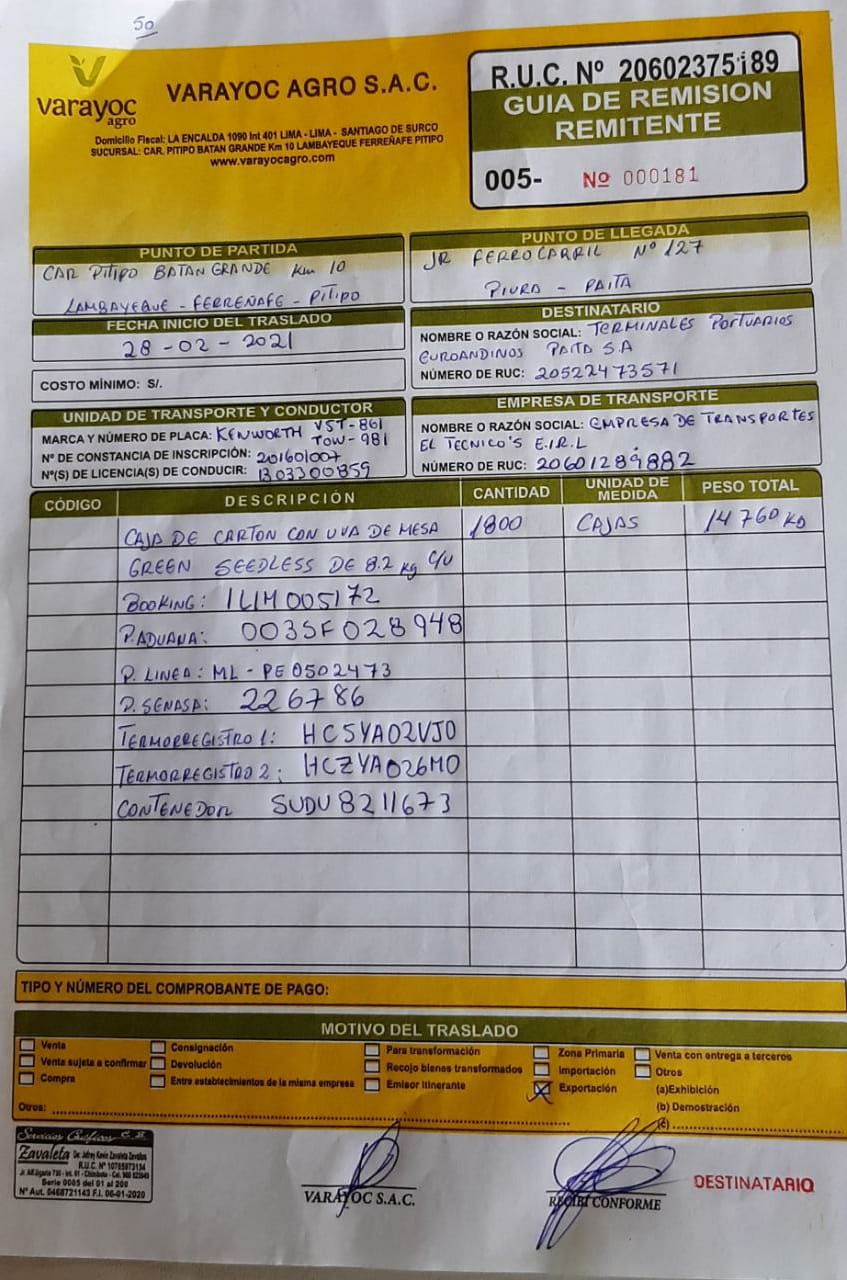 50
varayoc
agro
VARAYOC AGRO S.A.C.
Domicilio Fiscal: LA ENCALDA 1090 Int 401 LIMA - LIMA - SANTIAGO DE SURCO
SUCURSAL: CAR. PITIPO BATAN GRANDE Km 10 LAMBAYEQUE FERREÑAFE PITIPO
www.varayocagro.com
R.U.C. Nº 20602375189
GUIA DE REMISION
REMITENTE
005- Nº 000181
PUNTO DE PARTIDA
CAR PITIPO BATAN GRANDE Km 10
LAMBAYEQUE - FERREÑAFE - PITIPO
PUNTO DE LLEGADA
JR FERROCARRIL Nº 127
PIURA - PAITA
FECHA INICIO DEL TRASLADO
28 - 02 - 2021
COSTO MÍNIMO: S/.
DESTINATARIO
NOMBRE O RAZÓN SOCIAL: TERMINALES PORTUARIOS
EUROANDINOS PAITA S.A
NÚMERO DE RUC: 20522473571
UNIDAD DE TRANSPORTE Y CONDUCTOR
MARCA Y NÚMERO DE PLACA: KENWORTH V5T-861
TOW-981
Nº DE CONSTANCIA DE INSCRIPCIÓN: 201601007
Nº(S) DE LICENCIA(S) DE CONDUCIR: B03300859
EMPRESA DE TRANSPORTE
NOMBRE O RAZÓN SOCIAL: EMPRESA DE TRANSPORTES
EL TECNICO'S E.I.R.L
NÚMERO DE RUC: 20601289882
CÓDIGO DESCRIPCIÓN CANTIDAD UNIDAD DE MEDIDA PESO TOTAL
CAJA DE CARTON CON UVA DE MESA 1800 CAJAS 14 760 KG
GREEN SEEDLESS DE 8.2 kg C/U
BOOKING: 1LIM005172
P. ADUANA: 003SF028948
P. LINEA: ML - PE 0502473
P. SENASA: 226786
TERMORREGISTRO 1: HC5YA02VJ0
TERMORREGISTRO 2: HCZYA026M0
CONTENEDOR SUDU 8211673
TIPO Y NÚMERO DEL COMPROBANTE DE PAGO:
MOTIVO DEL TRASLADO
Venta Consignación Para transformación Zona Primaria Venta con entrega a terceros
Venta sujeta a confirmar Devolución Recojo bienes transformados Importación Otros
Compra Entre establecimientos de la misma empresa Emisor Itinerante Exportación (a)Exhibición
(b) Demostración
Otros: (c)
Servicios Gráficos
Zavaleta De: Jefrey Kevin Zavaleta Zevallos
R.U.C. Nº 10765873134
Serie 0005 del 01 al 200
Nº Aut. 0468721143 F.I. 06-01-2020
VARAYOC S.A.C.
RECIBI CONFORME
DESTINATARIO